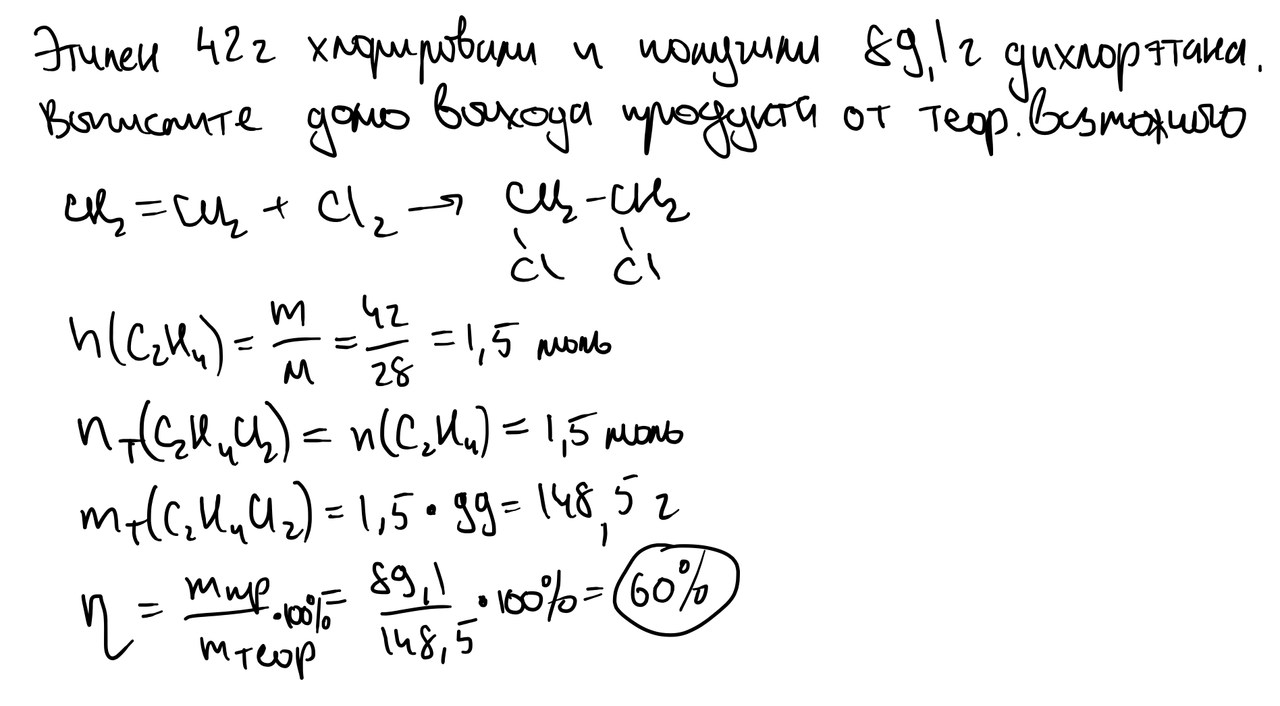 Этилен 42 г хлорировали и получили 89,1 г дихлорэтана.
Вычислите долю выхода продукта от теор. возможного
CH₂=CH₂ + Cl₂ → CH₂-CH₂
Cl Cl
n(C₂H₄) = m/M = 42/28 = 1,5 моль
nт(C₂H₄Cl₂) = n(C₂H₄) = 1,5 моль
mт(C₂H₄Cl₂) = 1,5 · 99 = 148,5 г
η = mпр/mтеор ·100% = 89,1/148,5 · 100% = 60%